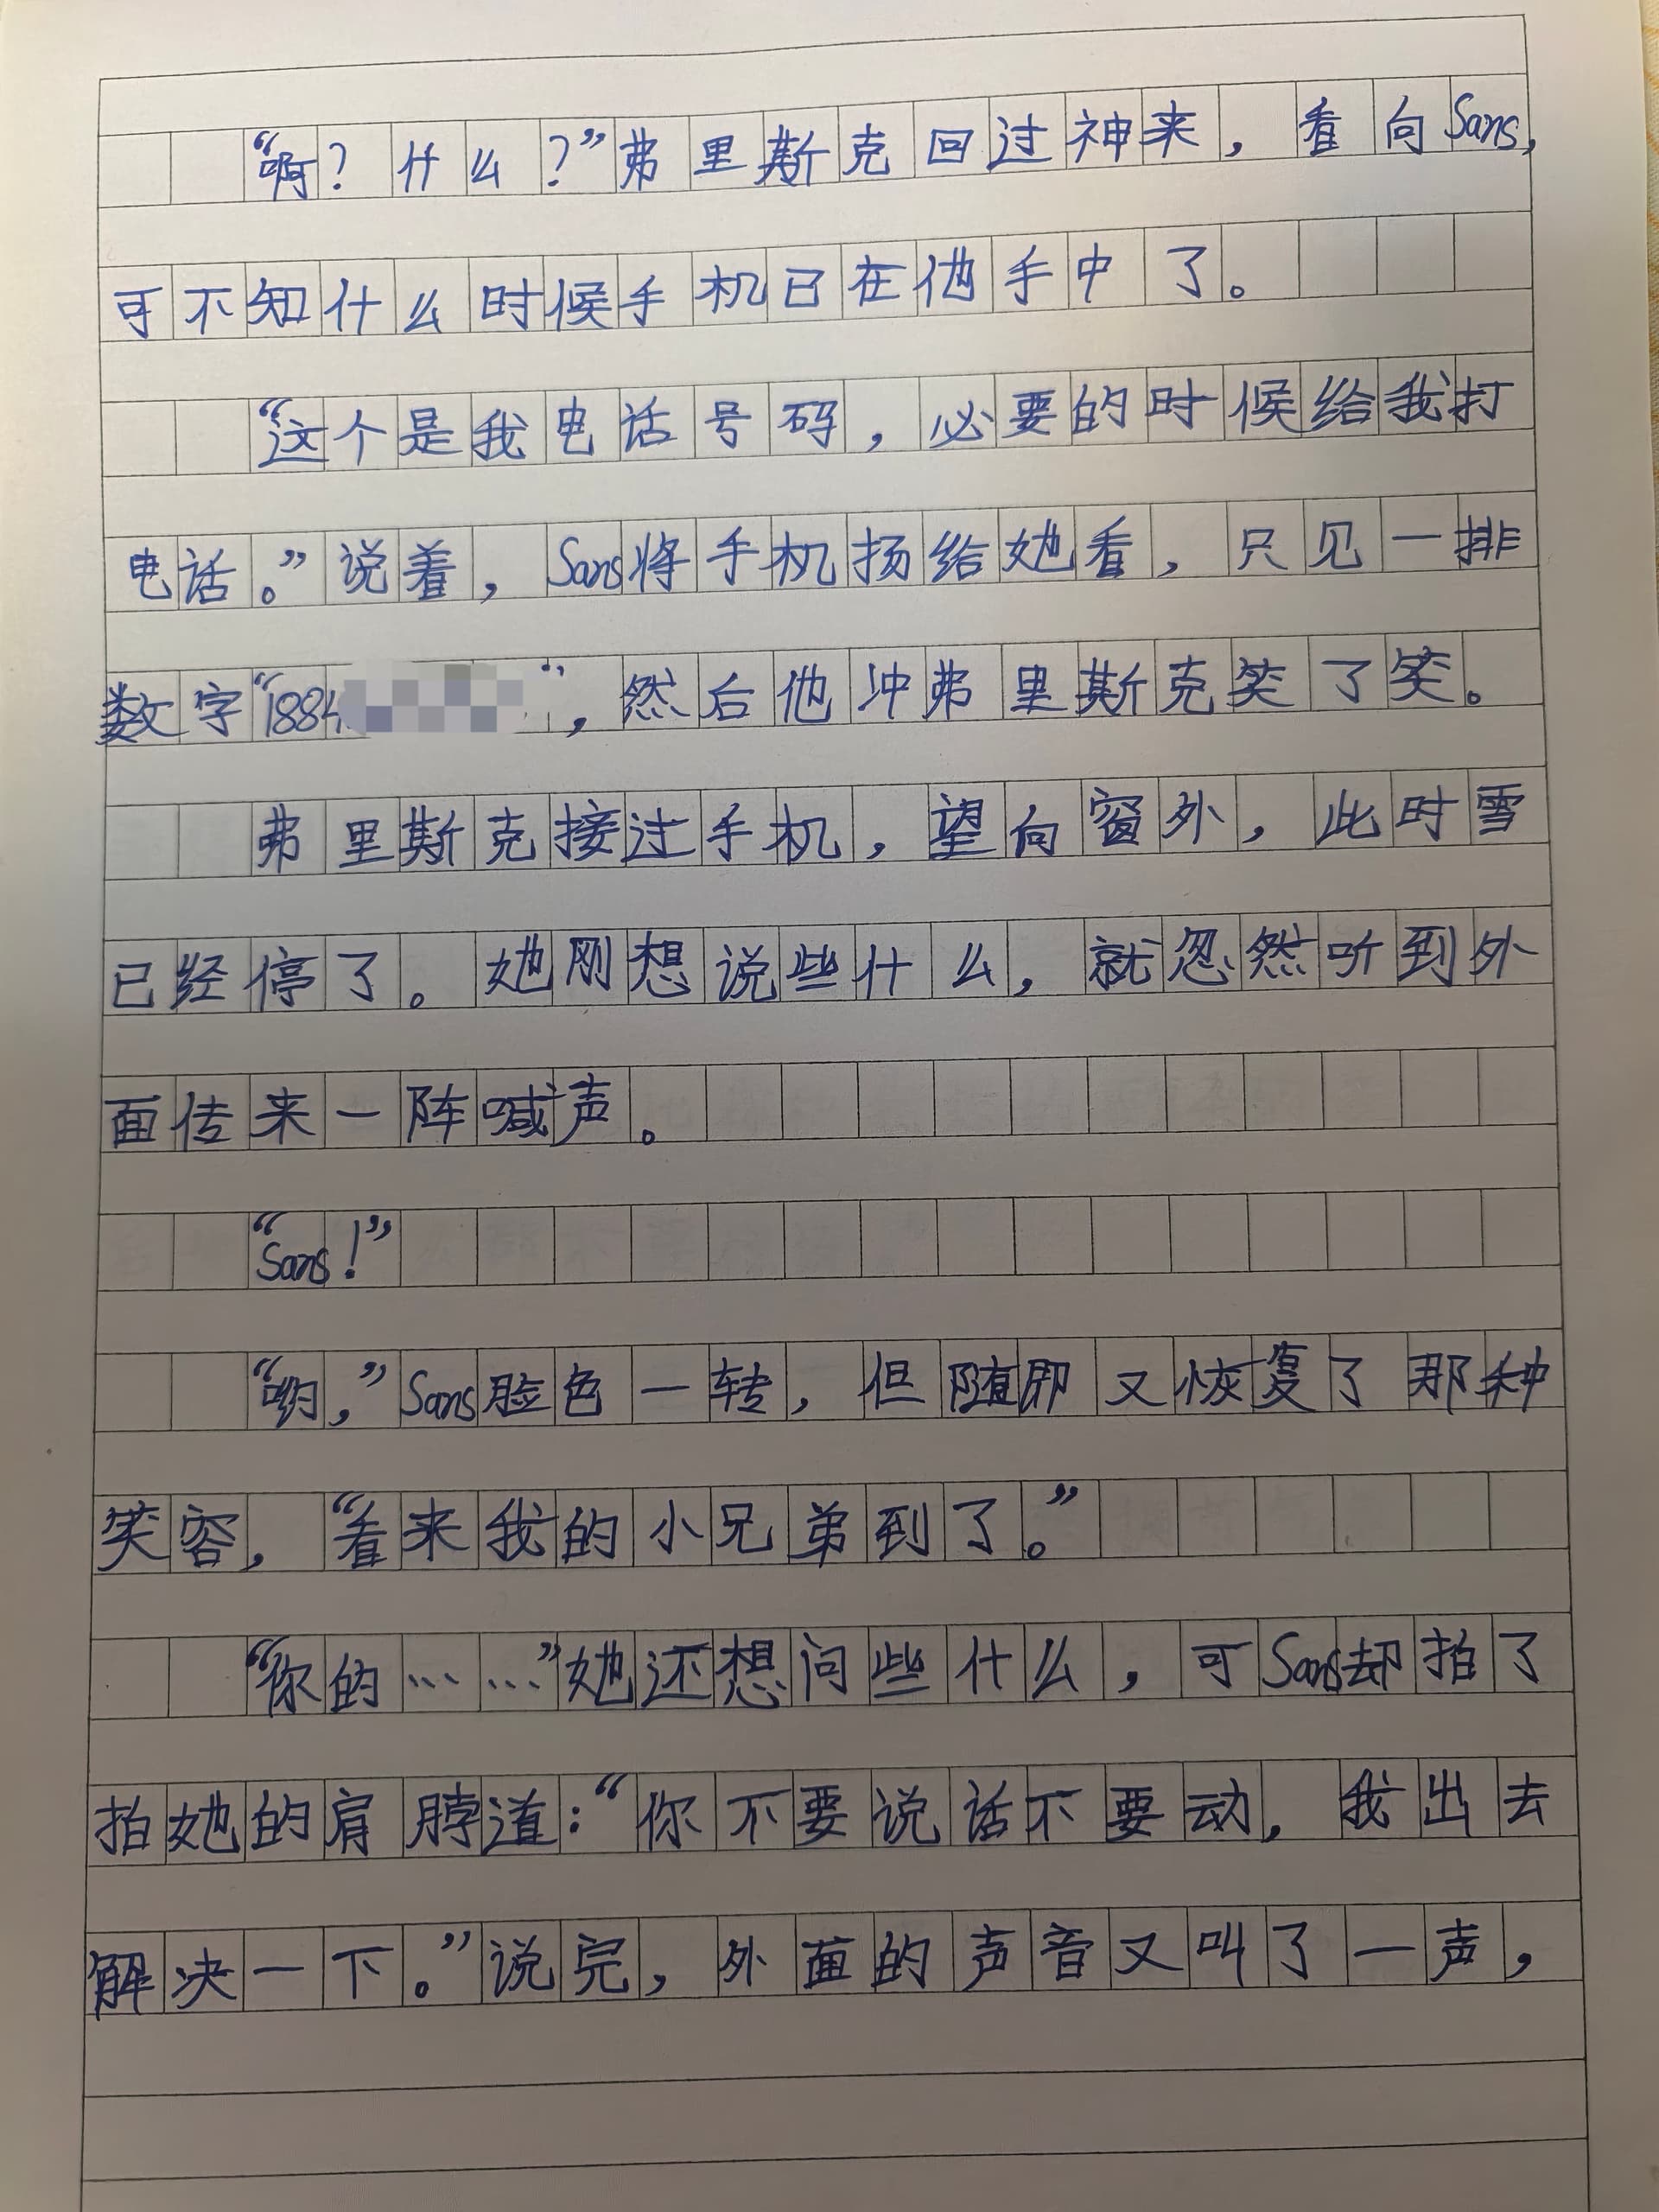 “啊？什么？”弗里斯克回过神来，看向Sans，
可不知什么时候手机已在他手中了。
“这个是我电话号码，必要的时候给我打
电话。”说着，Sans将手机扬给她看，只见一排
数字“1884”，然后他冲弗里斯克笑了笑。
弗里斯克接过手机，望向窗外，此时雪
已经停了。她刚想说些什么，就忽然听到外
面传来一阵喊声。
“Sans！”
“哟，”Sans脸色一转，但随即又恢复了那种
笑容，“看来我的小兄弟到了。”
“你的……”她还想问些什么，可Sans却拍了
拍她的肩膀道：“你不要说话不要动，我出去
解决一下。”说完，外面的声音又叫了一声，